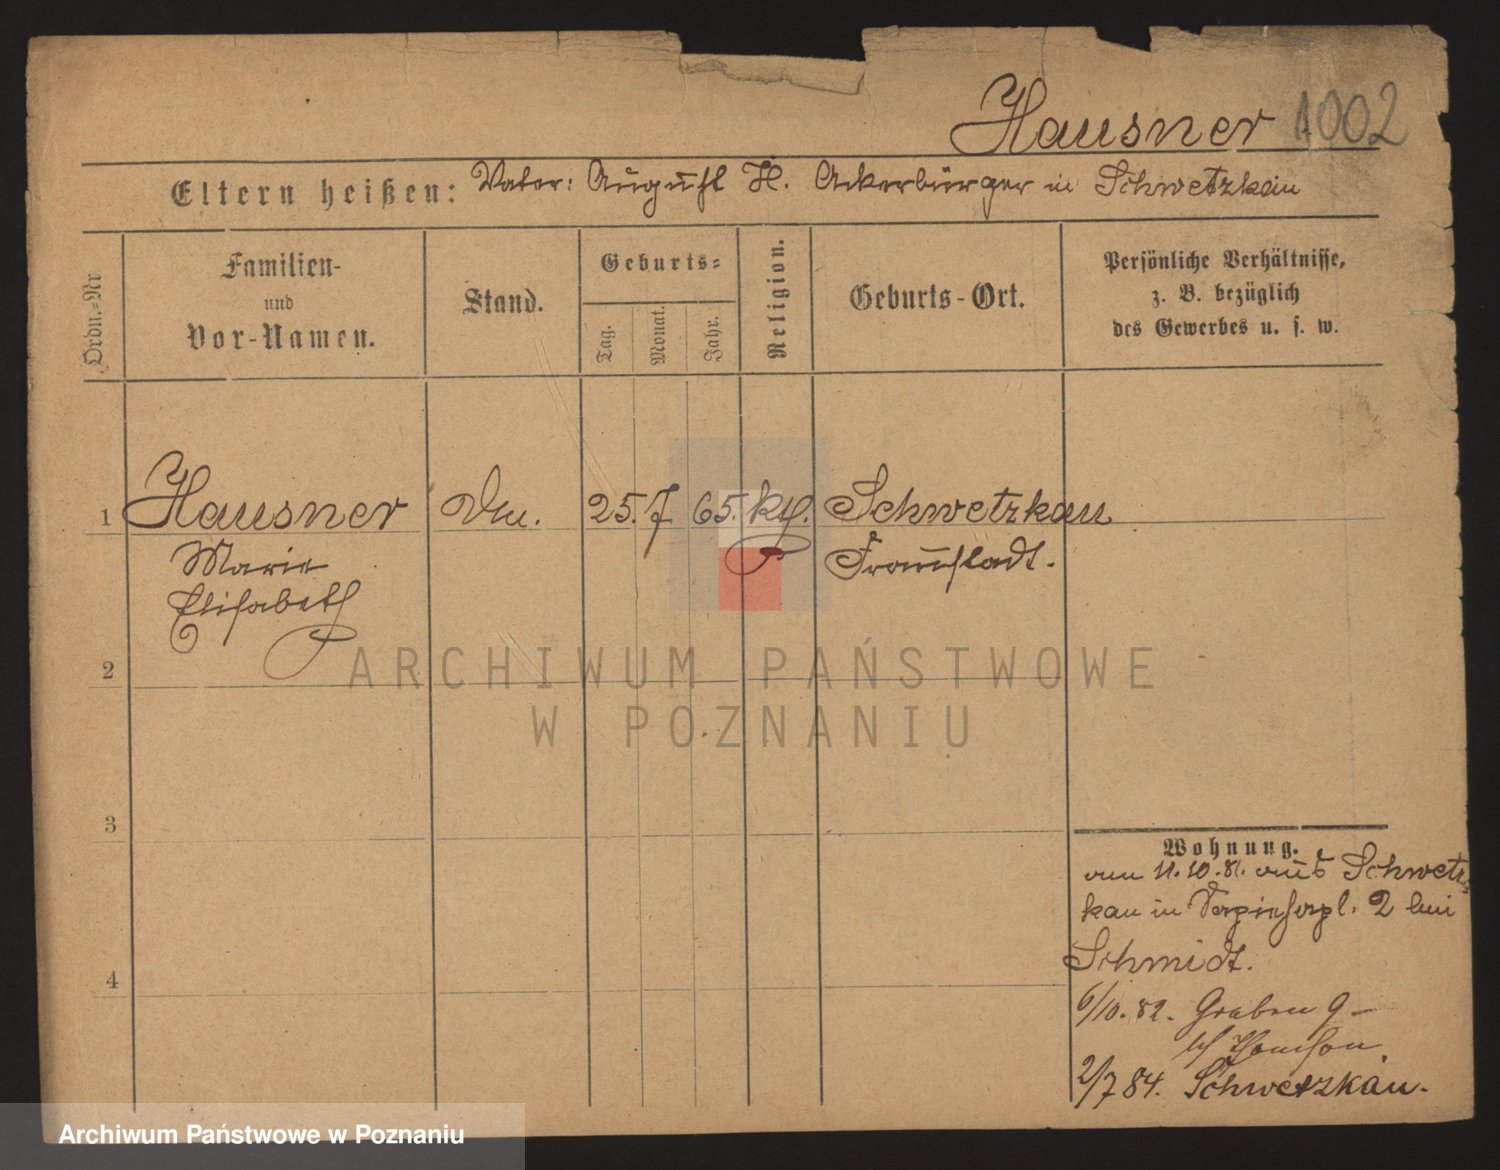 Hausner 1002
Eltern heißen: Vater: August H. Ackerbürger in Schwetzkau
Ordn.-Nr
Familien-
und
Vor-Namen.
Stand.
Geburts-
Tag.
Monat.
Jahr.
Religion.
Geburts-Ort.
Persönliche Verhältnisse,
z. B. bezüglich
des Gewerbes u. s. w.
1 Hausner 25. 7 65. kth. Schwetzkau
Marie Fraustadt.
Elisabeth
2
3
4
Wohnung.
11.10.81. aus Schwetz-
kau in 2 bei
Schmidt.
6/10.82. Graben 9
2/7 84. Schwetzkau.
ARCHIWUM PAŃSTWOWE
W POZNANIU
Archiwum Państwowe w Poznaniu